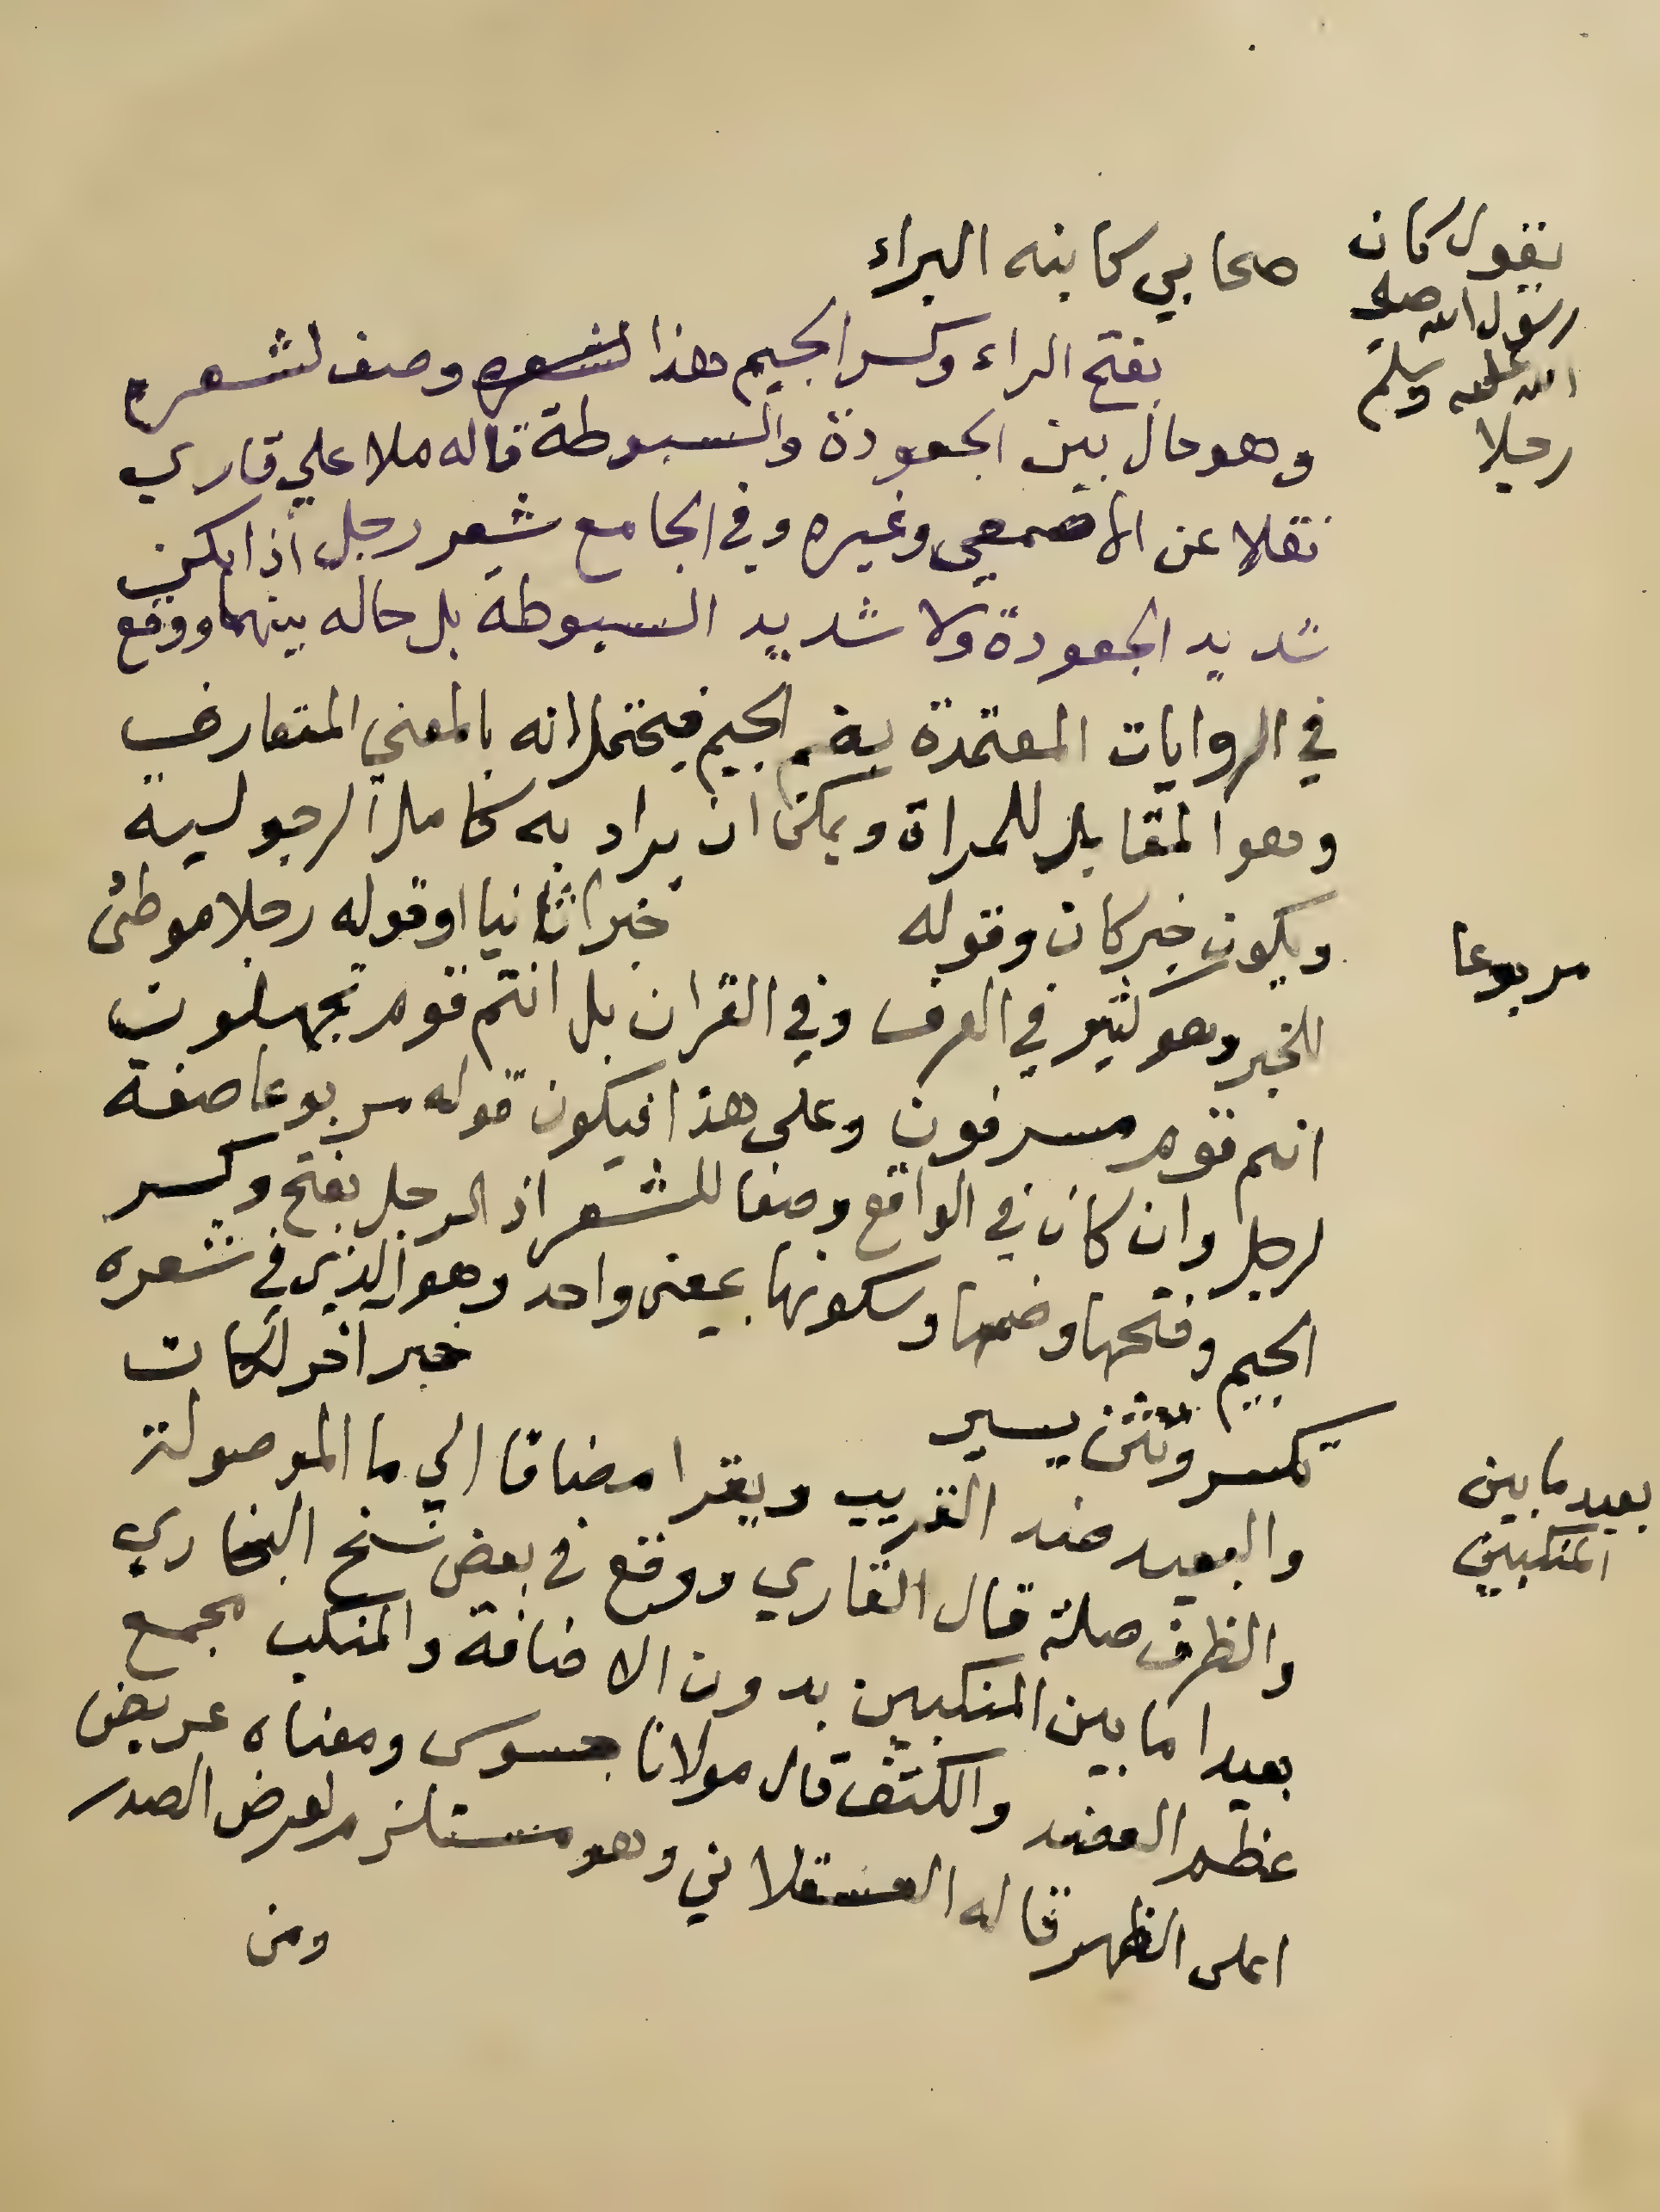 يقول كان
رسول الله صلى
الله عليه وسلم
رجلا
صحابي كابنه البراء
بفتح الراء وكسر الجيم هذا لشعره وصف لشعره
وهو حال بين الجعودة والسبوطة قاله ملا علي قاري
نقلا عن الاصمعي وغيره وفي الجامع شعر رجل اذا لم يكن
شديد الجعودة ولا شديد السبوطة بل حاله بينهما ووقع
في الروايات المعتمدة بضم الجيم فيحتمل انه بالمعني المتعارف
وهو المقابل للمراة ويمكن ان يراد به كاملا الرجولية
ويكون خبر كان وقوله خبرا ثانيا او قوله رجلا موطئ
مربوعا
للخبر وهو كثير في العرف وفي القران بل انتم قوم تجهلون
انتم قوم مسرفون وعلى هذا فيكون قوله مربوعا صفة
لرجل وان كان في الواقع وصفا للشعر اذ الرجل بفتح وكسر
الجيم وفتحها وضمها وسكونها بمعنى واحد وهو الذي في شعره
تكسر وتثن يسير خبر آخر لكان
بعيد ما بين
المنكبين
والبعيد ضد القريب ويقرا مضافا الي ما الموصولة
والظرف صلة قال القاري ووقع في بعض نسخ البخاري
بعيدا ما بين المنكبين بدون الاضافة والمنكب مجمع
عظم العضد والكتف قال مولانا جسوس ومعناه عريض
اعلى الظهر قاله العسقلاني وهو مستلزم لعرض الصدر
ومن